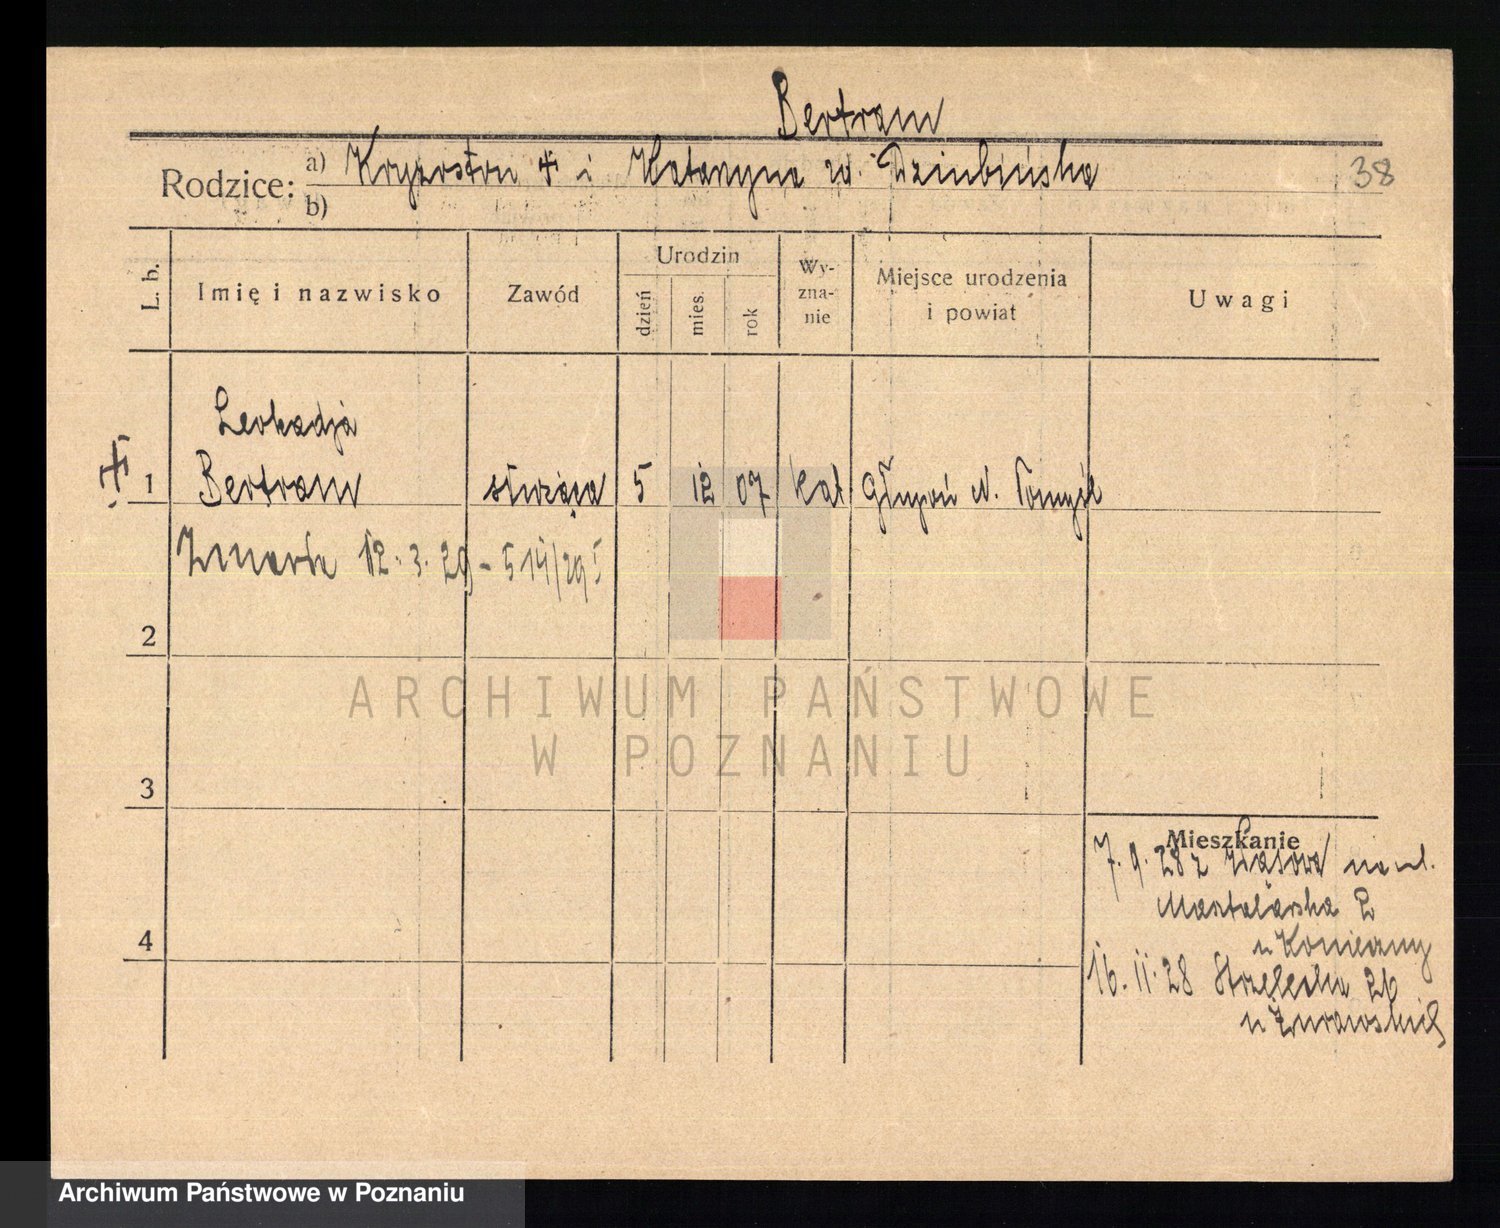 Bertram
Rodzice: a) Krysztow + i Katarzyna ur. Dziubińska
38
b)
L. b. Imię i nazwisko Zawód Urodzin dzień mies. rok Wy-zna-nie Miejsce urodzenia i powiat Uwagi
Leokadja
+ 1 Bertram służąca 5 12 07 kat Głuponi N. Tomyśl
Zmarła 12.3.29 - 514/29
2
ARCHIWUM PAŃSTWOWE
W POZNANIU
3
Mieszkanie
7.9.28 z Wąsowa na ul.
Masztalarska 2
u Konieczny
4
16.11.28 Strzelecka 26
u Żurawskich
Archiwum Państwowe w Poznaniu